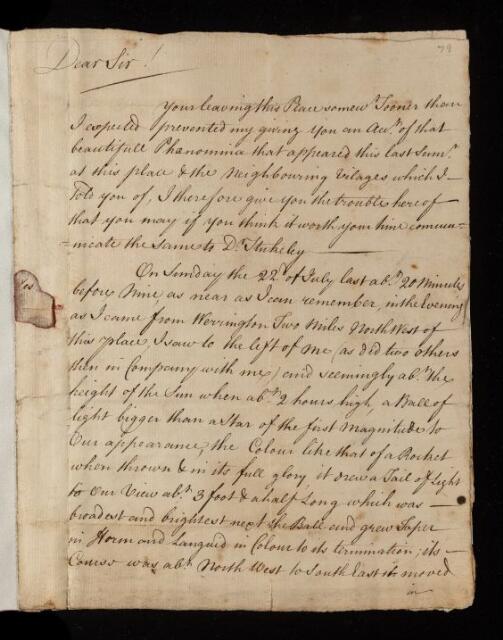 79
Dear Sir!
Your leaving this Place somew.t Sooner than
I expected prevented my giving You an Acc.t of that
beautifull Phænomina that appeared this last Sum.r
at this place & the Neighbouring Vilages which I
Told you of, I therefore give you the trouble hereof
that you may if you think it worth your time commu-
=nicate the same to D.r Stukeley
On Sunday the 22.d of July last ab.t 20 Minutes
before Nine, as near as I can remember, in the Evening
as I came from Werrington Two Miles North West of
this place, I saw to the left of me (as did two others
then in Company with me) and seemingly ab.t the
height of the Sun when ab.t 2 hours high, a Ball of
light bigger than a Star of the first Magnitude to
Our appearance, the Colour like that of a Rocket
when thrown & in its full glory, it drew a Tail of Light
to Our View ab.t 3 foot & a half Long which was
broadest and brightest next the Ball and grew Taper
in Form and Languid in Colour to its termination, its
Course was ab.t North West to South East it moved
in